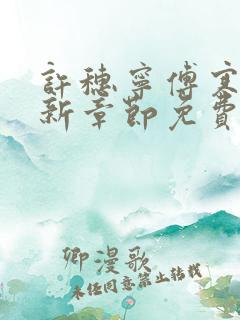 許穗寧傅寒
新章節免費
卿漫歌
未经同意禁止转载